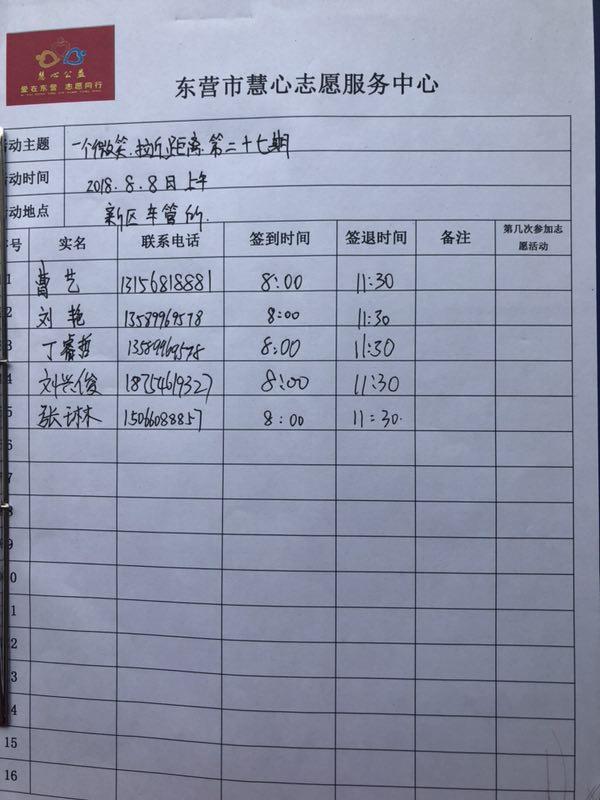 慧心公益
爱在东营 志愿同行
东营市慧心志愿服务中心
活动主题 一个微笑.拉近距离.第二十七期
活动时间 2018.8.8日上午
活动地点 新区车管所.
序号 实名 联系电话 签到时间 签退时间 备注 第几次参加志愿活动
1 曹艺 13156818881 8:00 11:30
2 刘艳 13589969578 8:00 11:30
3 丁睿哲 13589969578 8:00 11:30
4 刘兴俊 18754619327 8:00 11:30
5 张琳 15066088857 8:00 11:30.
6
7
8
9
0
1
2
3
4
15
16